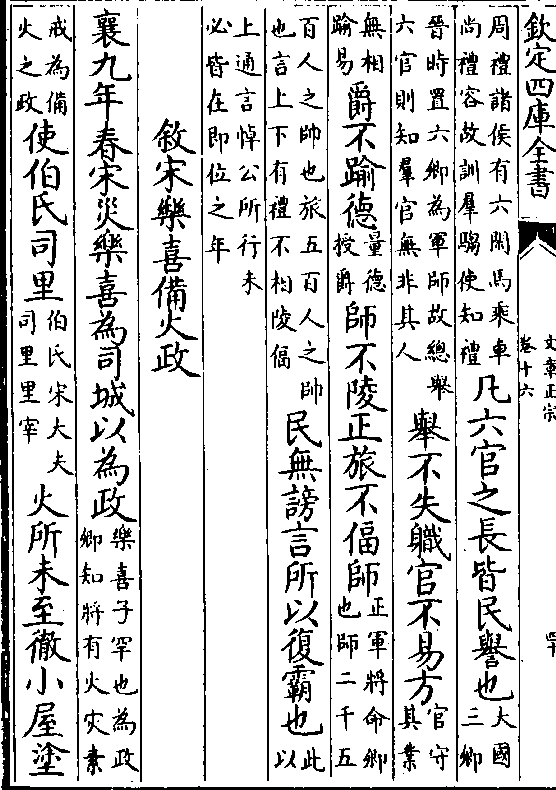 欽定四庫全書
文章正宗
卷十六
四十
周禮諸侯有六閑馬乘車尚禮容故訓羣騶使知禮凡六官之長皆民譽也大國三卿
晉時置六卿為軍帥故總舉六官則知羣官無非其人舉不失職官不易方官守其業
無相踰易爵不踰德量德授爵師不陵正旅不偪師正軍將命卿也師二千五
百人之帥也旅五百人之帥也言上下有禮不相陵偪民無謗言所以復霸也此以
上通言悼公所行未必皆在即位之年
敘宋樂喜備火政
襄九年春宋災樂喜為司城以為政樂喜子罕也為政卿知將有火災素
戒為備火之政使伯氏司里伯氏宋大夫司里里宰火所未至徹小屋塗